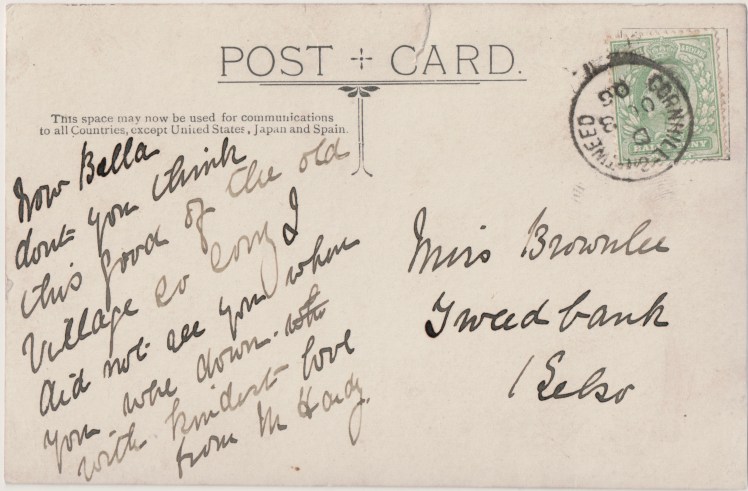 POST CARD.
This space may now be used for communications
to all Countries, except United States, Japan and Spain.
Now Bella
dont you think
this good of the old
Village so sorry I
did not see you when
you were down with
with kindest love
from M Hardy.
Miss Brownlee
Tweedbank
Kelso
CORNHILL-ON-TWEED
HALFPENNY